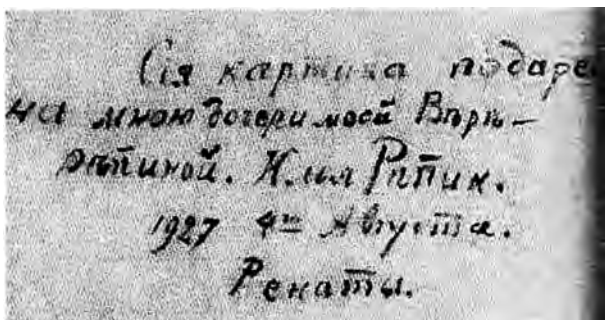 Сія картина подаре
на мною дочери моей Вѣрѣ –
Рѣпиной. Илья Рѣпин.
1927 4го Августа.
Пенаты.